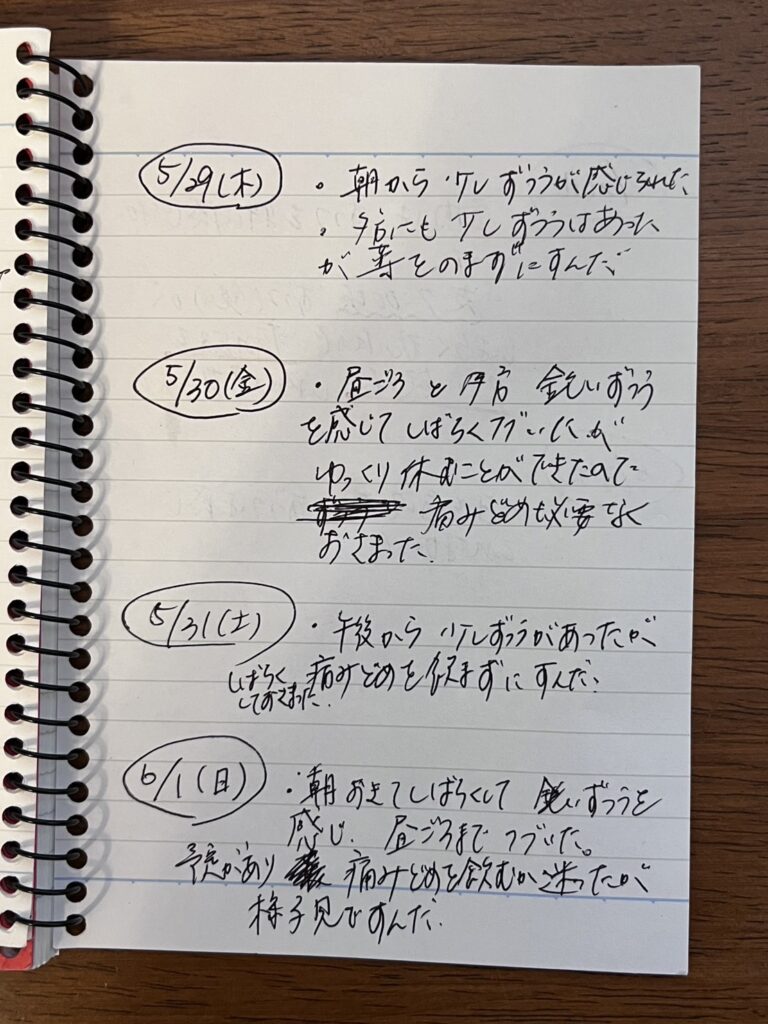 5/29(木) ・朝から少しずつうが感じられた
・夕方にも少しずつうはあった
が薬をのまずにすんだ
5/30(金) ・昼ごろと夕方 鈍いずつう
を感じてしばらくつづいたが
ゆっくり休むことができたので
痛みどめも必要なく
おさまった.
5/31(土) ・午後から少しずつうがあったが
しばらくしておさまった. 痛みどめを飲まずにすんだ.
6/1(日) ・朝おきてしばらくして 鈍いずつうを
感じ. 昼ごろまでつづいた。
予定があり 痛みどめを飲むか迷ったが
様子見ですんだ.